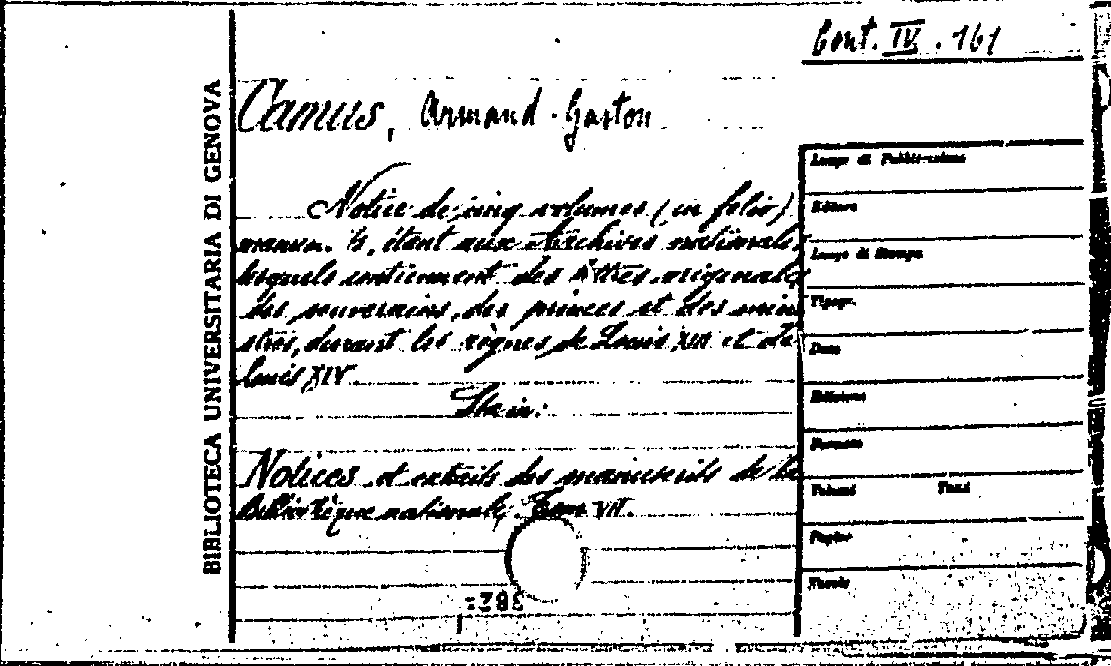 Cont. IV. 161
BIBLIOTECA UNIVERSITARIA DI GENOVA
Camus, Armand-Gaston
Notice de cinq volumes (in folio)
manuscrits, étant aux Archives nationales
lesquels contiennent des lettres originales
des souverains, des princes et des mini
stres, durant les règnes de Louis XIII et de
Louis XIV.
Notices et extraits des manuscrits de la
Bibliothèque nationale, Tom VII.
Luogo di Pubblicazione
Editore
Luogo di Stampa
Tipogr.
Data
Edizione
Formato
Volumi Tomi
Pagine